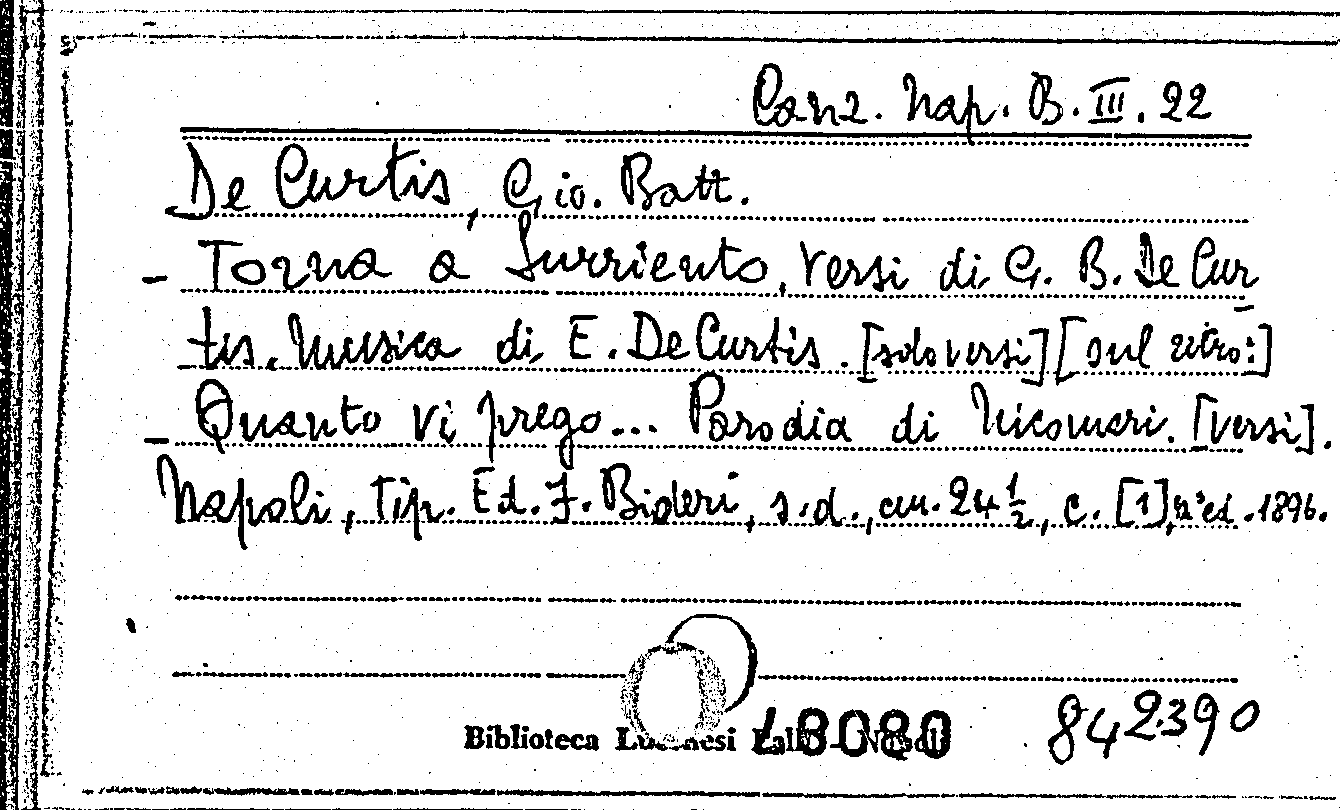 Canz. Nap. B. III. 22
De Curtis, Gio. Batt.
- Torna a Surriento, versi di G. B. De Cur
tis. Musica di E. De Curtis. [solo versi] [sul retro:]
- Quanto vi prego... Parodia di Nicomeri. [versi].
Napoli, Tip. Ed. F. Bideri, s.d., cm. 24 1/2, c. [1], n° ed. 1896.
Biblioteca
18080
842390